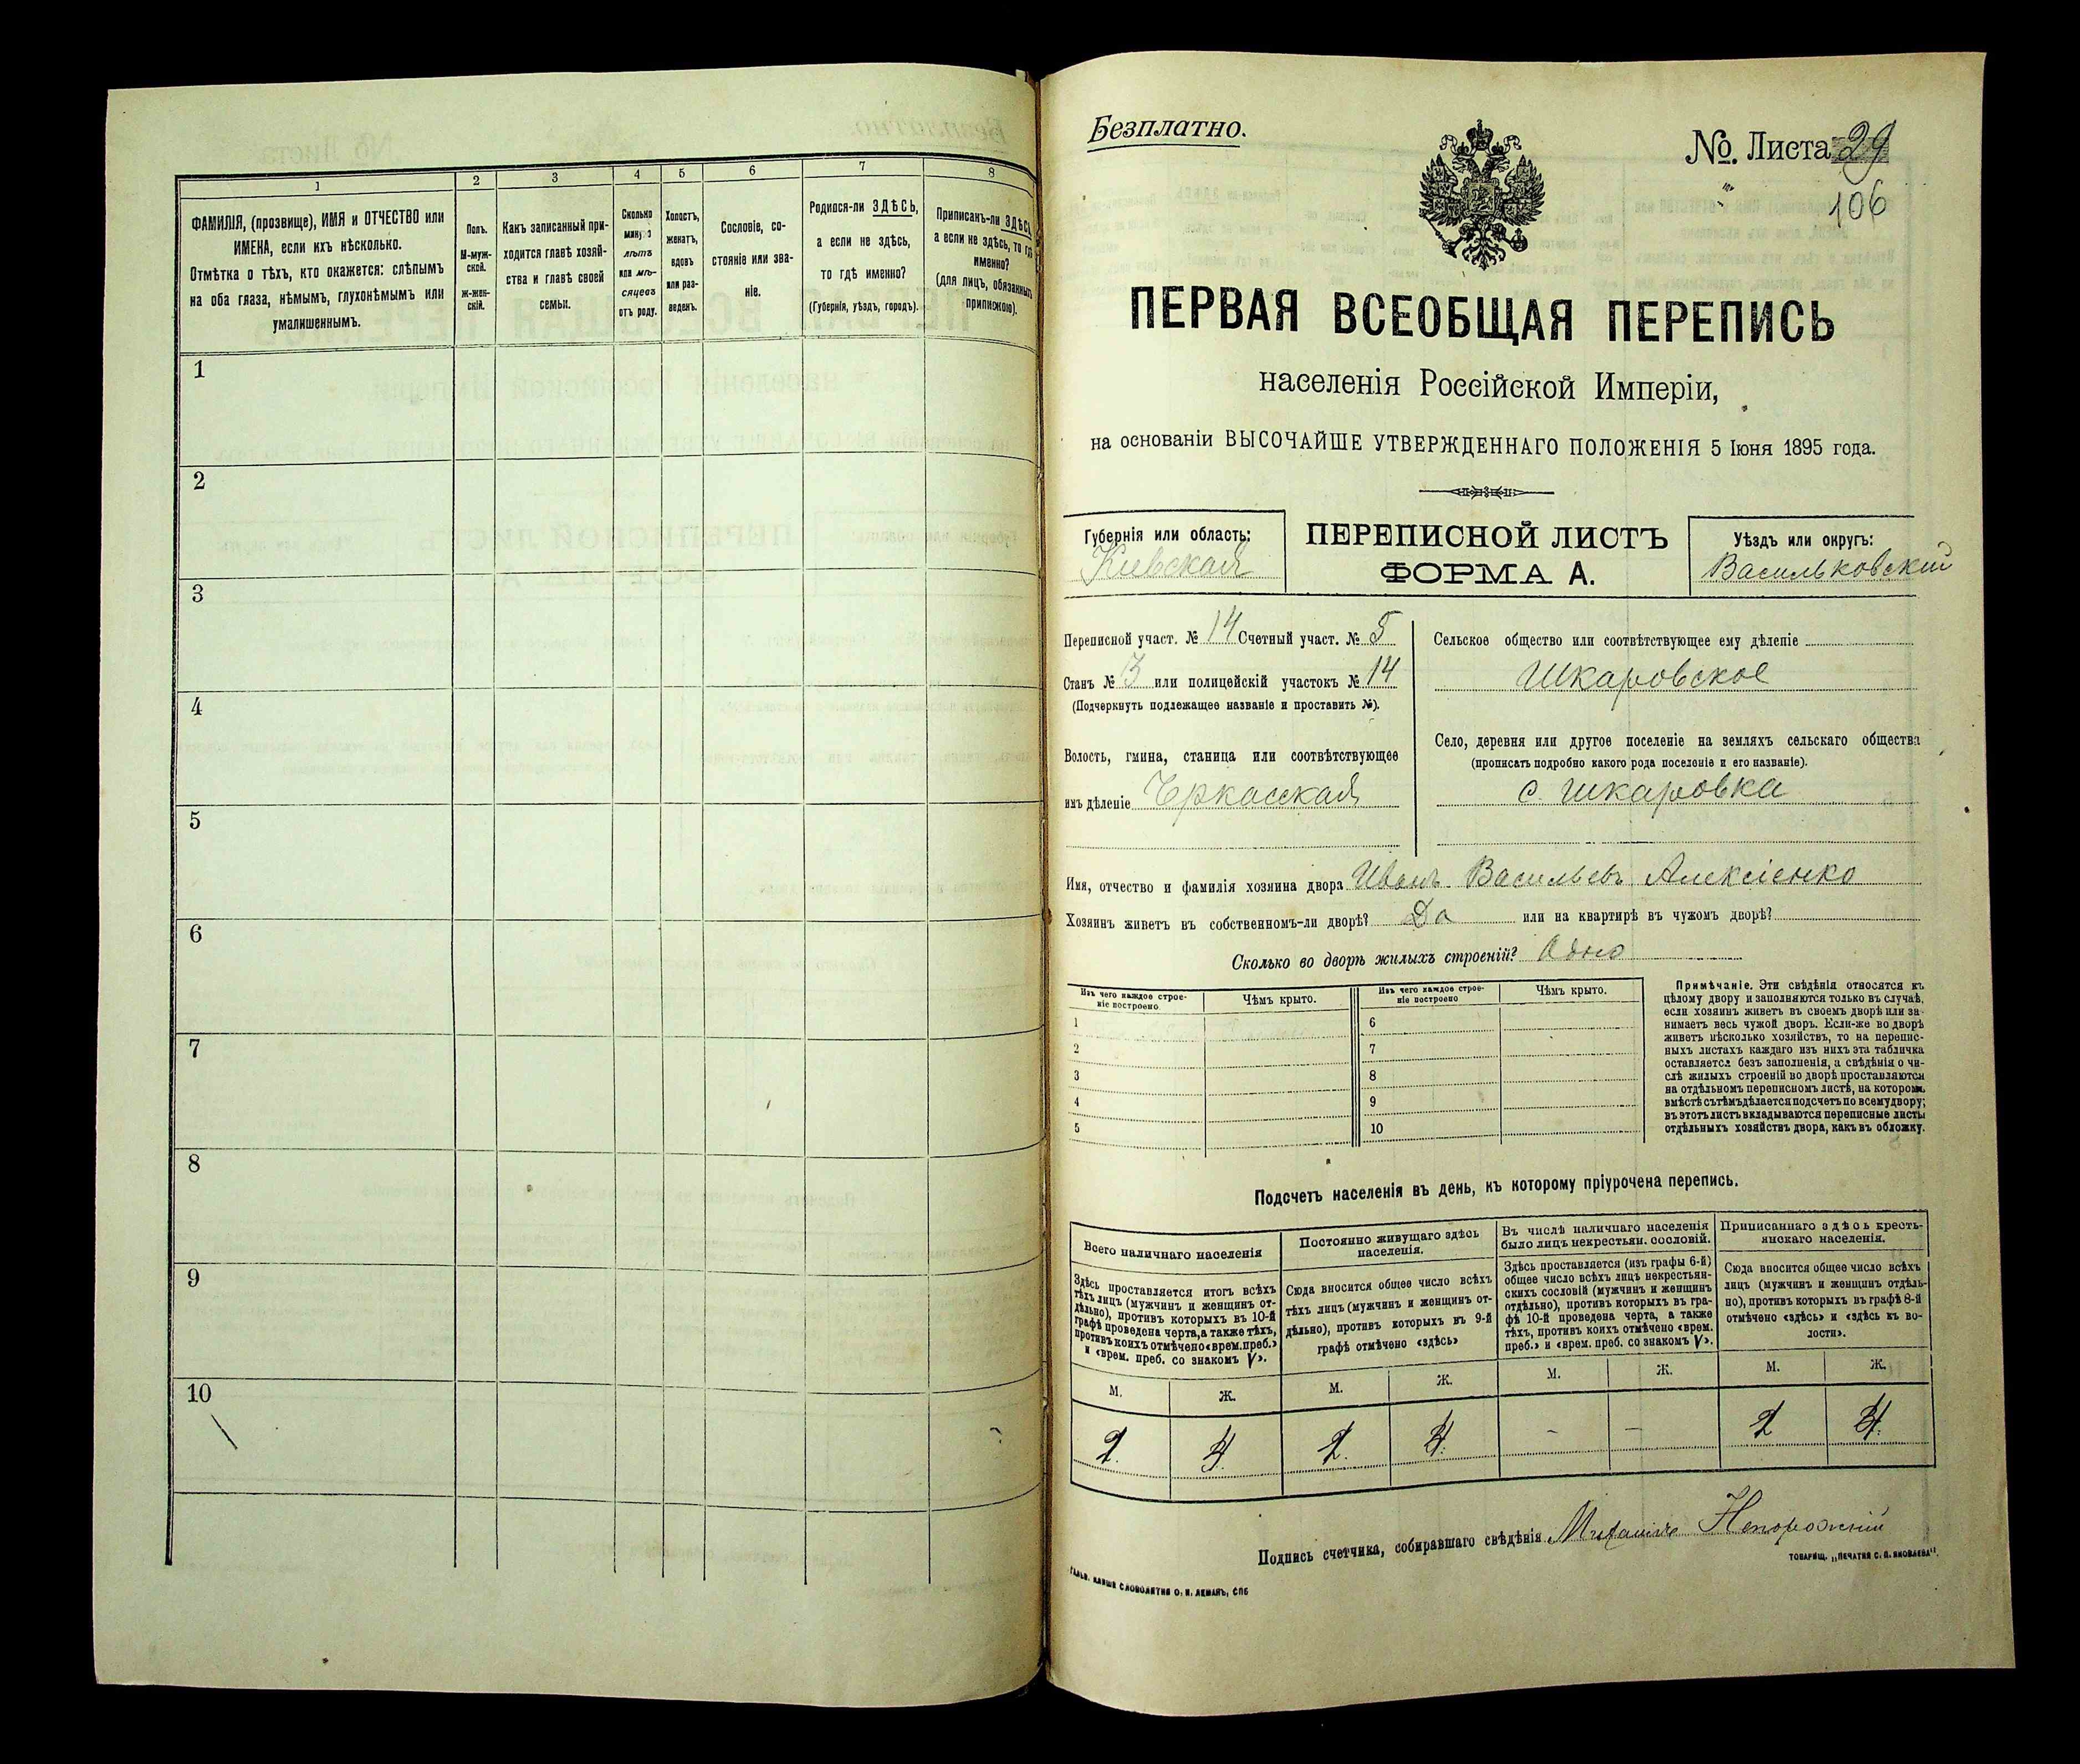 1 2 3 4 5 6 7 8
ФАМИЛІЯ, (прозвище), ИМЯ и ОТЧЕСТВО или
ИМЕНА, если ихъ нѣсколько.
Отмѣтка о тѣхъ, кто окажется: слѣпымъ
на оба глаза, нѣмымъ, глухонѣмымъ или
умалишеннымъ.
Полъ.
М-муж-
ской.
Ж-жен-
скій.
Какъ записанный при-
ходится главѣ хозяй-
ства и главѣ своей
семьи.
Сколько
минуло
лѣтъ
или мѣ-
сяцевъ
отъ роду.
Холостъ,
женатъ,
вдовъ
или раз-
веденъ.
Сословіе, со-
стояніе или зва-
ніе.
Родился-ли ЗДѢСЬ,
а если не здѣсь,
то гдѣ именно?
(Губернія, уѣздъ, городъ).
Приписанъ-ли ЗДѢСЬ,
а если не здѣсь, то гдѣ
именно?
(для лицъ, обязанныхъ
припискою).
1
2
3
4
5
6
7
8
9
10
Безплатно.
№. Листа 29
" 106
ПЕРВАЯ ВСЕОБЩАЯ ПЕРЕПИСЬ
населенія Россійской Имперіи,
на основаніи ВЫСОЧАЙШЕ УТВЕРЖДЕННАГО ПОЛОЖЕНІЯ 5 Іюня 1895 года.
Губернія или область:
Кіевская
ПЕРЕПИСНОЙ ЛИСТЪ
ФОРМА А.
Уѣздъ или округъ:
Васильковскій
Переписной участ. № 14 Счетный участ. № 5
Станъ № 3 или полицейскій участокъ № 14
(Подчеркнуть подлежащее названіе и проставить №).
Волость, гмина, станица или соотвѣтствующее
имъ дѣленіе Чркасская
Сельское общество или соотвѣтствующее ему дѣленіе
Шкаровское
Село, деревня или другое поселеніе на земляхъ сельскаго общества
(прописать подробно какого рода поселеніе и его названіе).
с. Шкаровка
Имя, отчество и фамилія хозяина двора Иванъ Васильевъ Алексіенко
Хозяинъ живетъ въ собственномъ-ли дворѣ? Да или на квартирѣ въ чужомъ дворѣ?
Сколько во дворѣ жилыхъ строеній? Одно
Изъ чего каждое строе-
ніе построено
Чѣмъ крыто.
Изъ чего каждое строе-
ніе построено
Чѣмъ крыто.
1 6
2 7
3 8
4 9
5 10
Примѣчаніе. Эти свѣдѣнія относятся къ
цѣлому двору и заполняются только въ случаѣ,
если хозяинъ живетъ въ своемъ дворѣ или за-
нимаетъ весь чужой дворъ. Если-же во дворѣ
живетъ нѣсколько хозяйствъ, то на перепис-
ныхъ листахъ каждаго изъ нихъ эта табличка
оставляется безъ заполненія, а свѣдѣнія о чи-
слѣ жилыхъ строеній во дворѣ проставляются
на отдѣльномъ переписномъ листѣ, на которомъ
вмѣстѣ съ тѣмъ дѣлается подсчетъ по всему двору;
въ этотъ листъ вкладываются переписные листы
отдѣльныхъ хозяйствъ двора, какъ въ обложку.
Подсчетъ населенія въ день, къ которому пріурочена перепись.
Всего наличнаго населенія
Здѣсь проставляется итогъ всѣхъ
тѣхъ лицъ (мужчинъ и женщинъ от-
дѣльно), противъ которыхъ въ 10-й
графѣ проведена черта, а также тѣхъ,
противъ коихъ отмѣчено «врем. преб.»
и «врем. преб. со знакомъ V».
Постоянно живущаго здѣсь
населенія.
Сюда вносится общее число всѣхъ
тѣхъ лицъ (мужчинъ и женщинъ от-
дѣльно), противъ которыхъ въ 9-й
графѣ отмѣчено «здѣсь»
Въ числѣ наличнаго населенія
было лицъ некрестьян. сословій.
Здѣсь проставляется (изъ графы 6-й)
общее число всѣхъ лицъ некрестьян-
скихъ сословій (мужчинъ и женщинъ
отдѣльно), противъ которыхъ въ гра-
фѣ 10-й проведена черта, а также
тѣхъ, противъ коихъ отмѣчено «врем.
преб.» и «врем. преб. со знакомъ V».
Приписаннаго здѣсь кресть-
янскаго населенія.
Сюда вносится общее число всѣхъ
лицъ (мужчинъ и женщинъ отдѣль-
но), противъ которыхъ въ графѣ 8-й
отмѣчено «здѣсь» и «здѣсь къ во-
лости».
М. Ж. М. Ж. М. Ж. М. Ж.
2. 4. 2. 4. - - 2 4.
Подпись счетчика, собиравшаго свѣдѣнія Михаилъ Непорожній
ТОВАРИЩ. „ПЕЧАТНЯ С. П. ЯКОВЛЕВА".
ГАЛЬВ. КЛИШЕ СЛОВОЛИТНИ О. И. ЛЕМАНЪ, СПБ